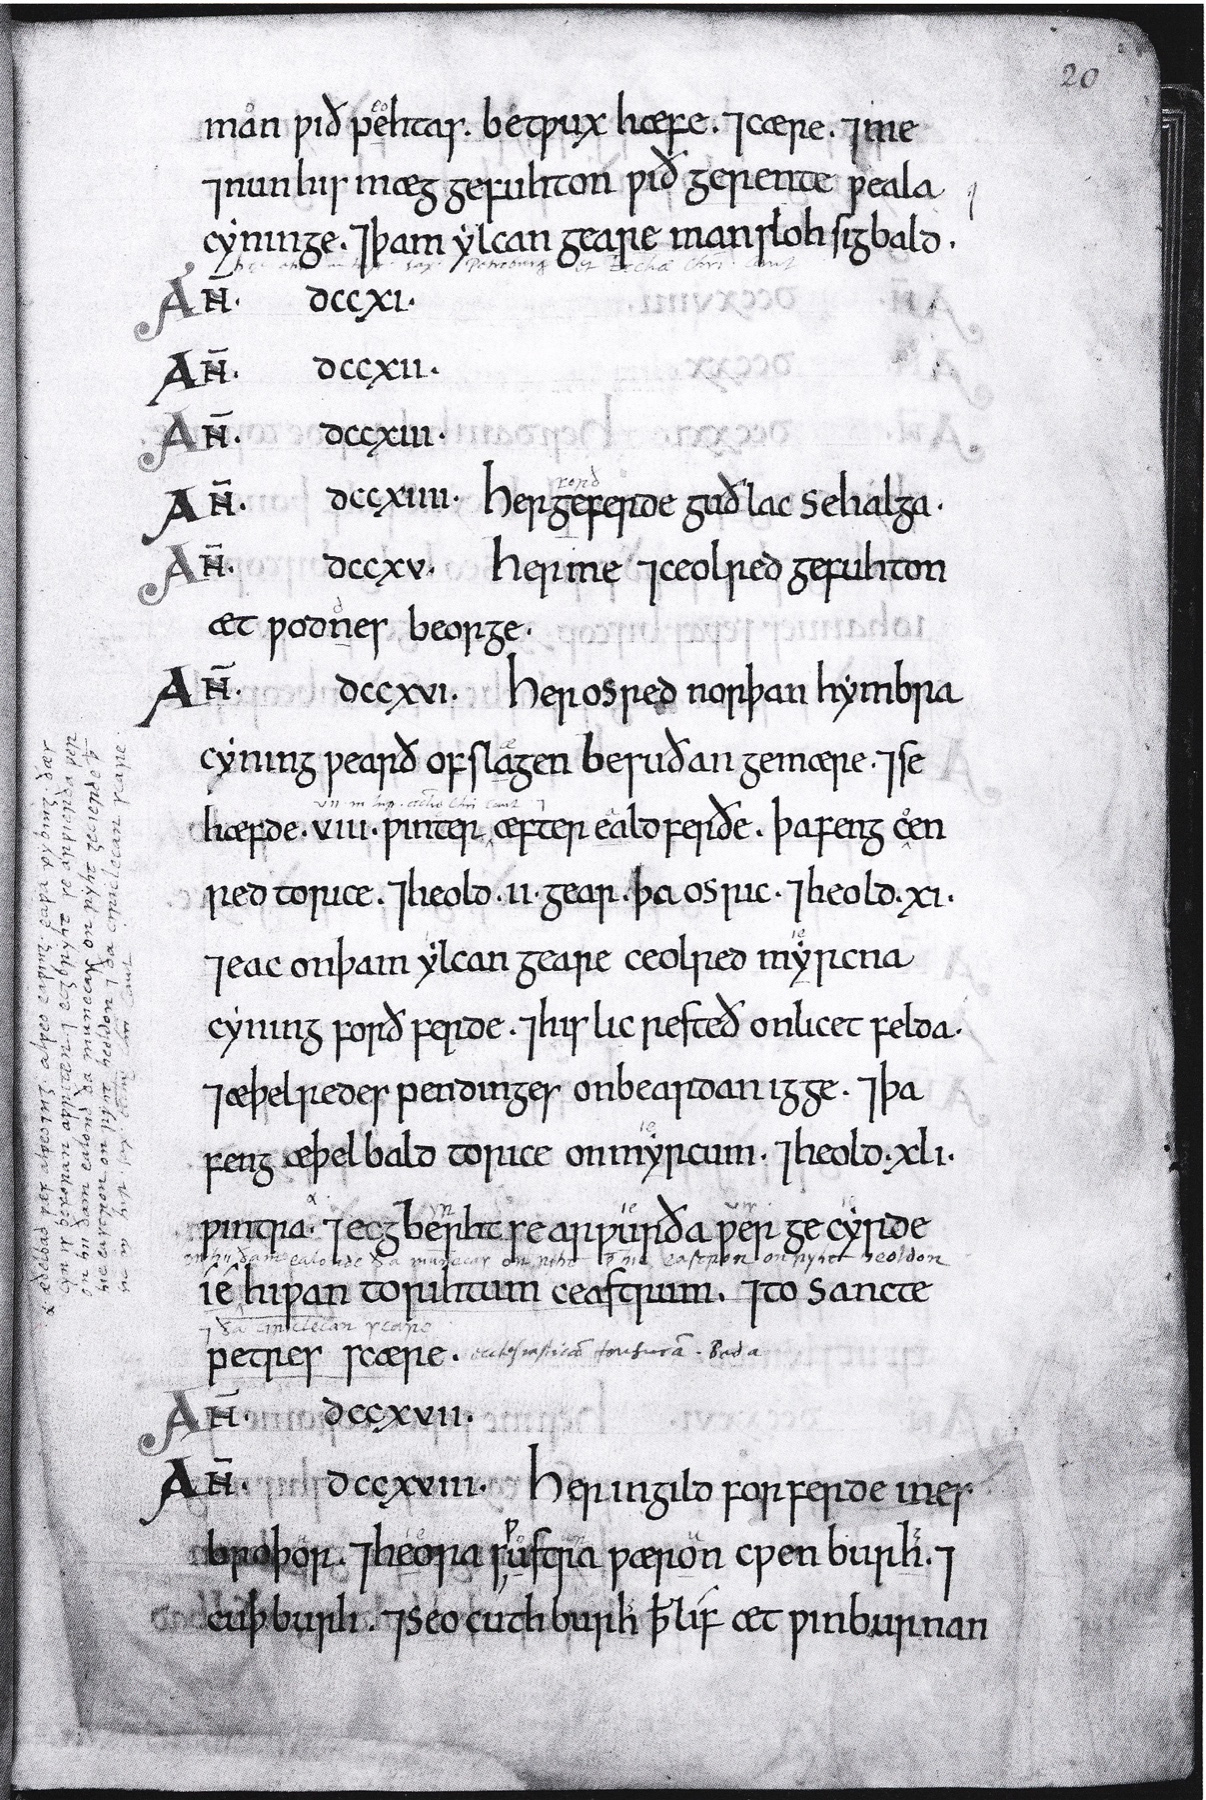 20
man ƿið pehtas. betƿux hæfe. ⁊cære. ⁊ine
⁊nun his mæg gefuhton ƿið gerente ƿeala
cẏninge. ⁊þam ẏlcan geare man sloh sigbald.
AN̄. DCCXI.
AN̄. DCCXII.
AN̄. DCCXIII.
AN̄. DCCXIIII. Her geferde guðlac se halga.
AN̄. DCCXV. Her ine ⁊ceolred gefuhton
æt ƿodnes beorge.
AN̄. DCCXVI. Her osred norþan hẏmbra
cẏning ƿearð ofslagen be suðan gemære. ⁊se
hæfde. VIII. ƿinter æfter ealdferðe. þa feng cœn
red to rice. ⁊heold. II. gear. þa osric. ⁊heold. XI.
⁊eac on þam ẏlcan geare ceolred mẏrcna
cẏning forð ferde. ⁊his lic resteð on licet felda.
⁊æþelredes pendinges on beardan igge. ⁊þa
feng æþelbald to rice on mẏrcum. ⁊heold. XLI.
ƿintra. ⁊ecgberht se arƿurða ƿer ge cẏrde
on hii ðam ealonde ða munecas on riht þ hie eastron on ryht heoldon
ie hiƿan to rihtum ceastrum. ⁊to sancte
⁊ ða ciriclecan scære
petres scære. ecclesiasticā tonsurā. Beda
AN̄. DCCXVII.
AN̄. DCCXVIII. Her ingild forferde ines
broþor. ⁊heora sustra ƿæron cƿenburh. ⁊
cuþburh. ⁊seo cuthburh þ lif æt ƿinburnan